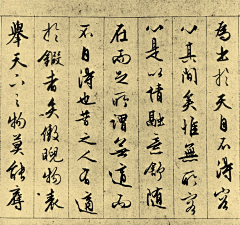 為出於天自不得容
心其間矣惟無所容
心是以情融意舒隨
在而足所謂無適而
不自得也昔之人有適
於鍛者矣傲睨物表
舉天下之物莫能